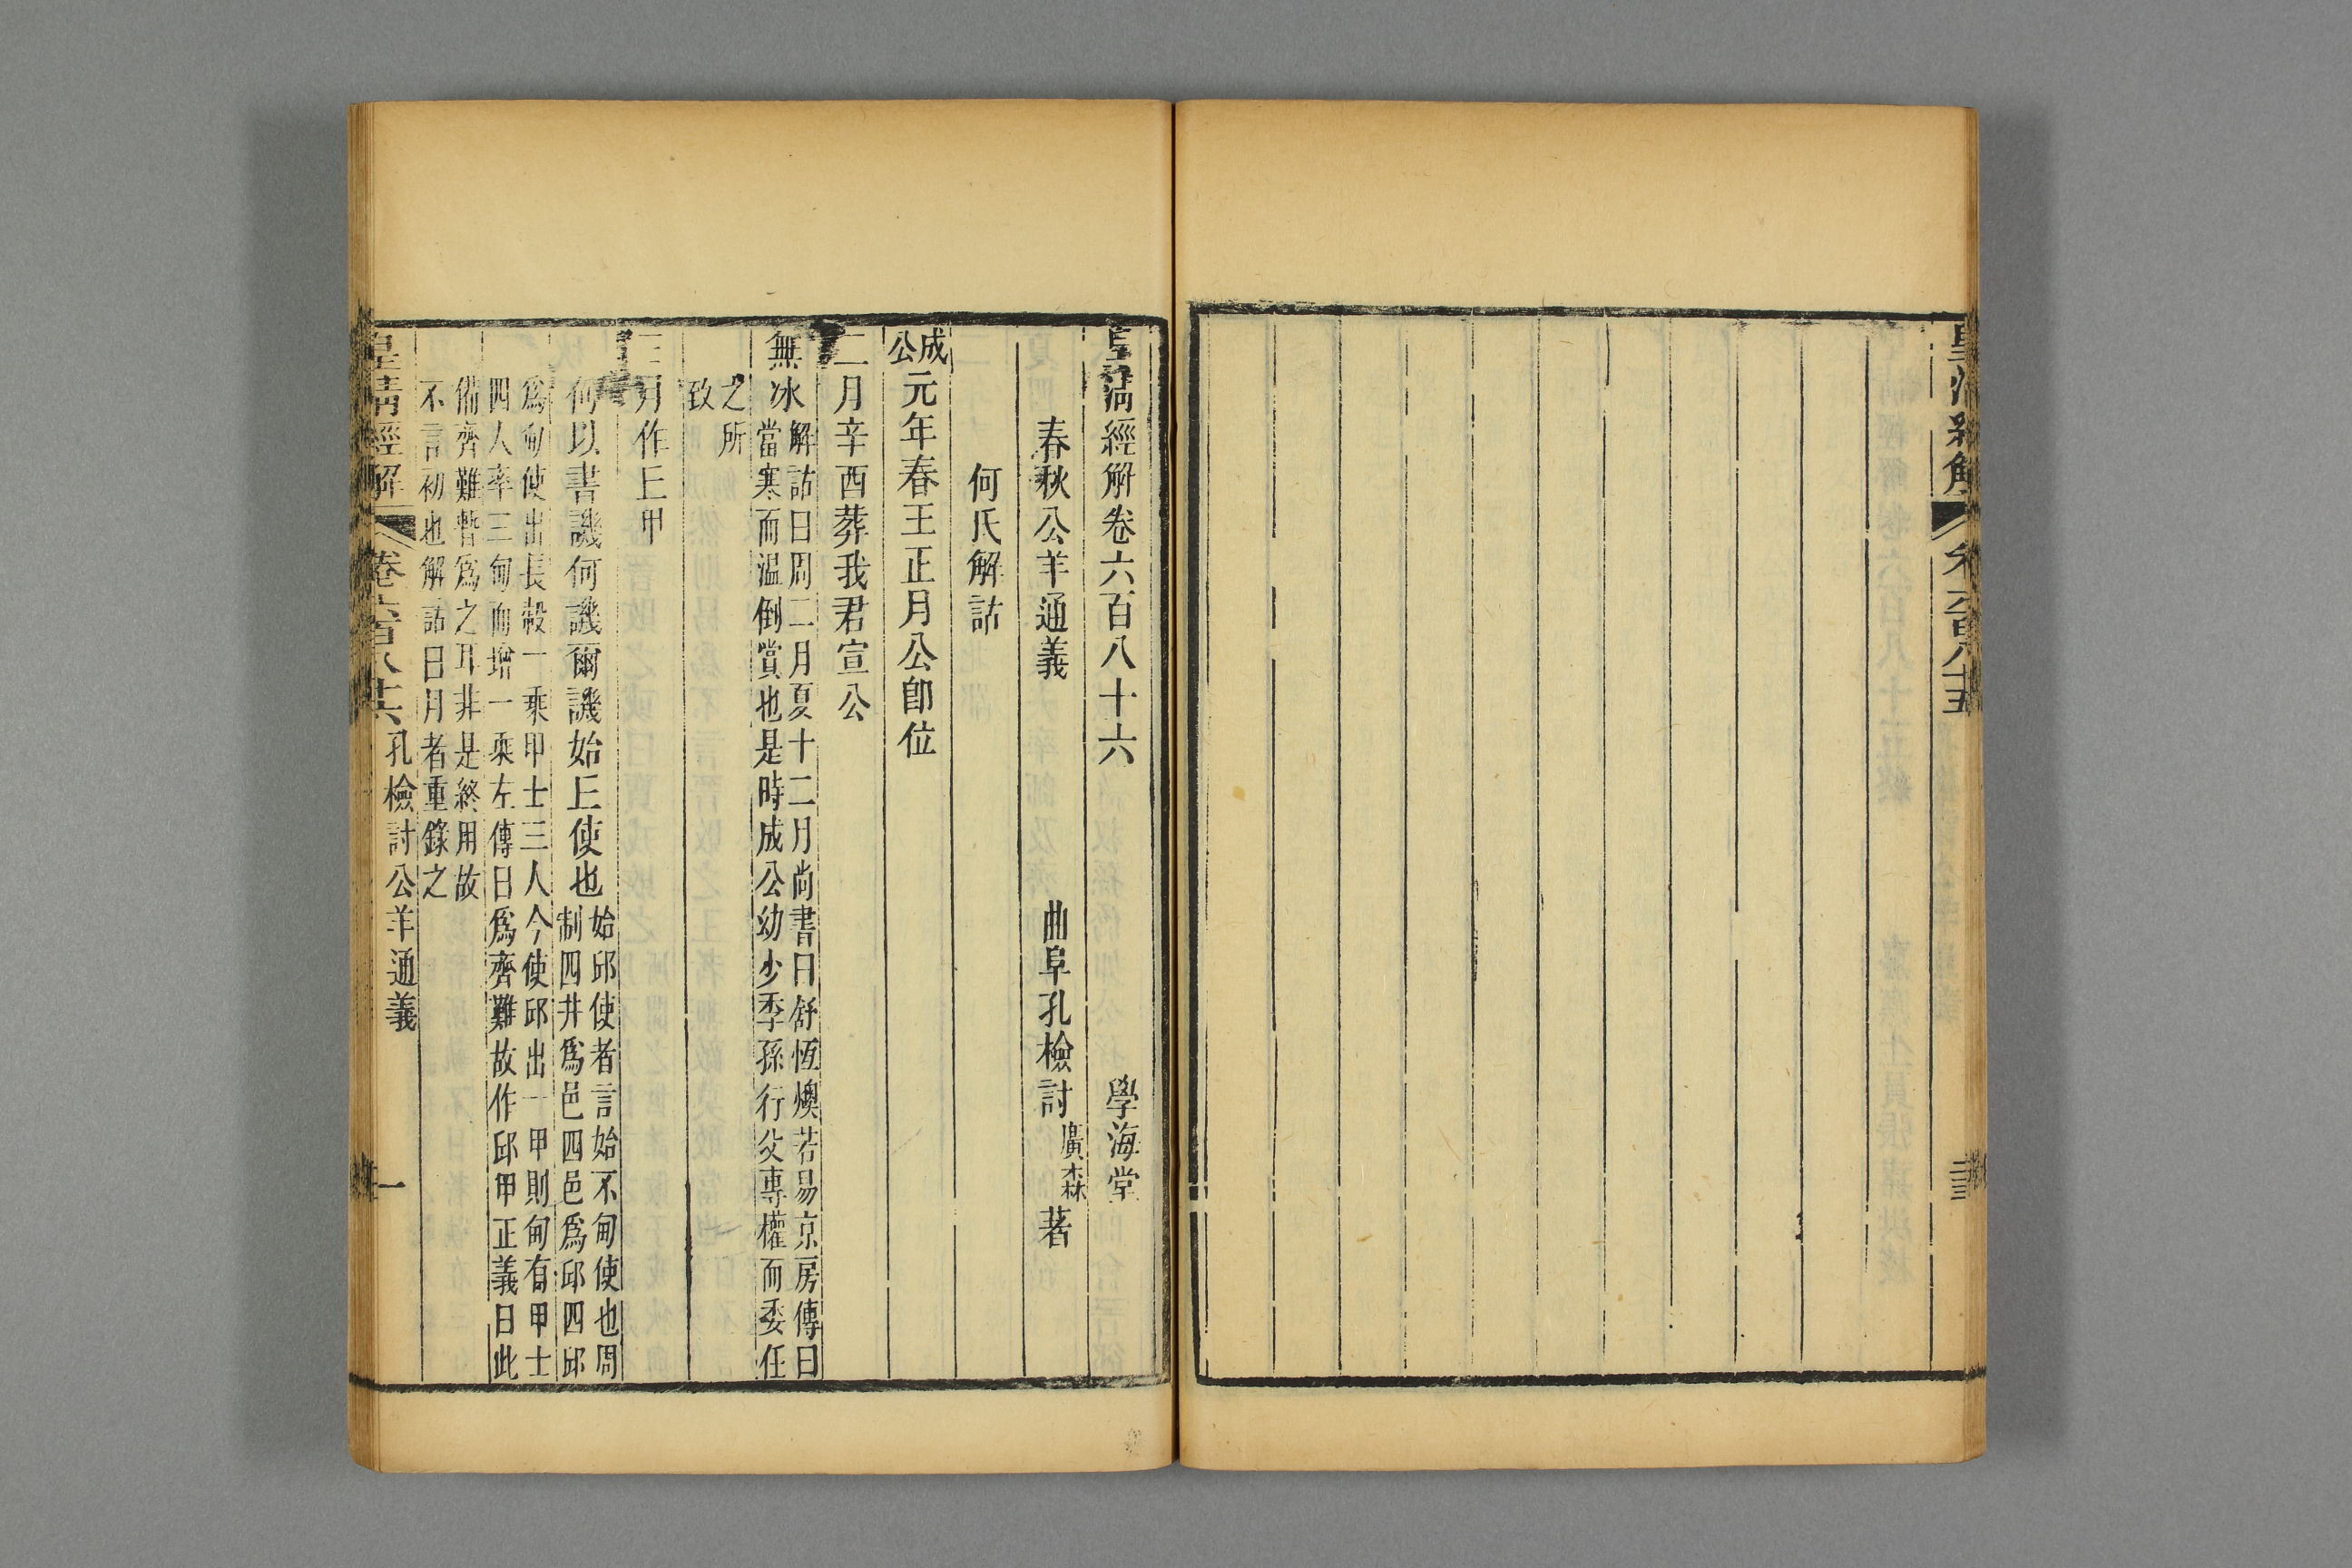 皇清經解
卷六百八十五
皇清經解卷六百八十六
學海堂
春秋公羊通義
曲阜孔檢討廣森著
何氏解詁
成公元年春王正月公卽位
二月辛酉葬我君宣公
無冰
解詁曰周二月夏十二月尚書曰舒恆燠若易京房傳曰
當寒而溫倒賞也是時成公幼少季孫行父專權而委任
之所
致
三月作丘甲
何以書譏何譏爾譏始丘使也
始邱使者言始不甸使也周
制四井爲邑四邑爲邱四邱
爲甸使出長轂一乘甲士三人今使邱出一甲則甸有甲士
四人率三甸而增一乘左傳曰爲齊難故作邱甲正義曰此
備齊難暫爲之耳非是終用故
不言初也解詁曰月者重錄之
皇清經解
卷六百八十六
孔檢討公羊通義
一